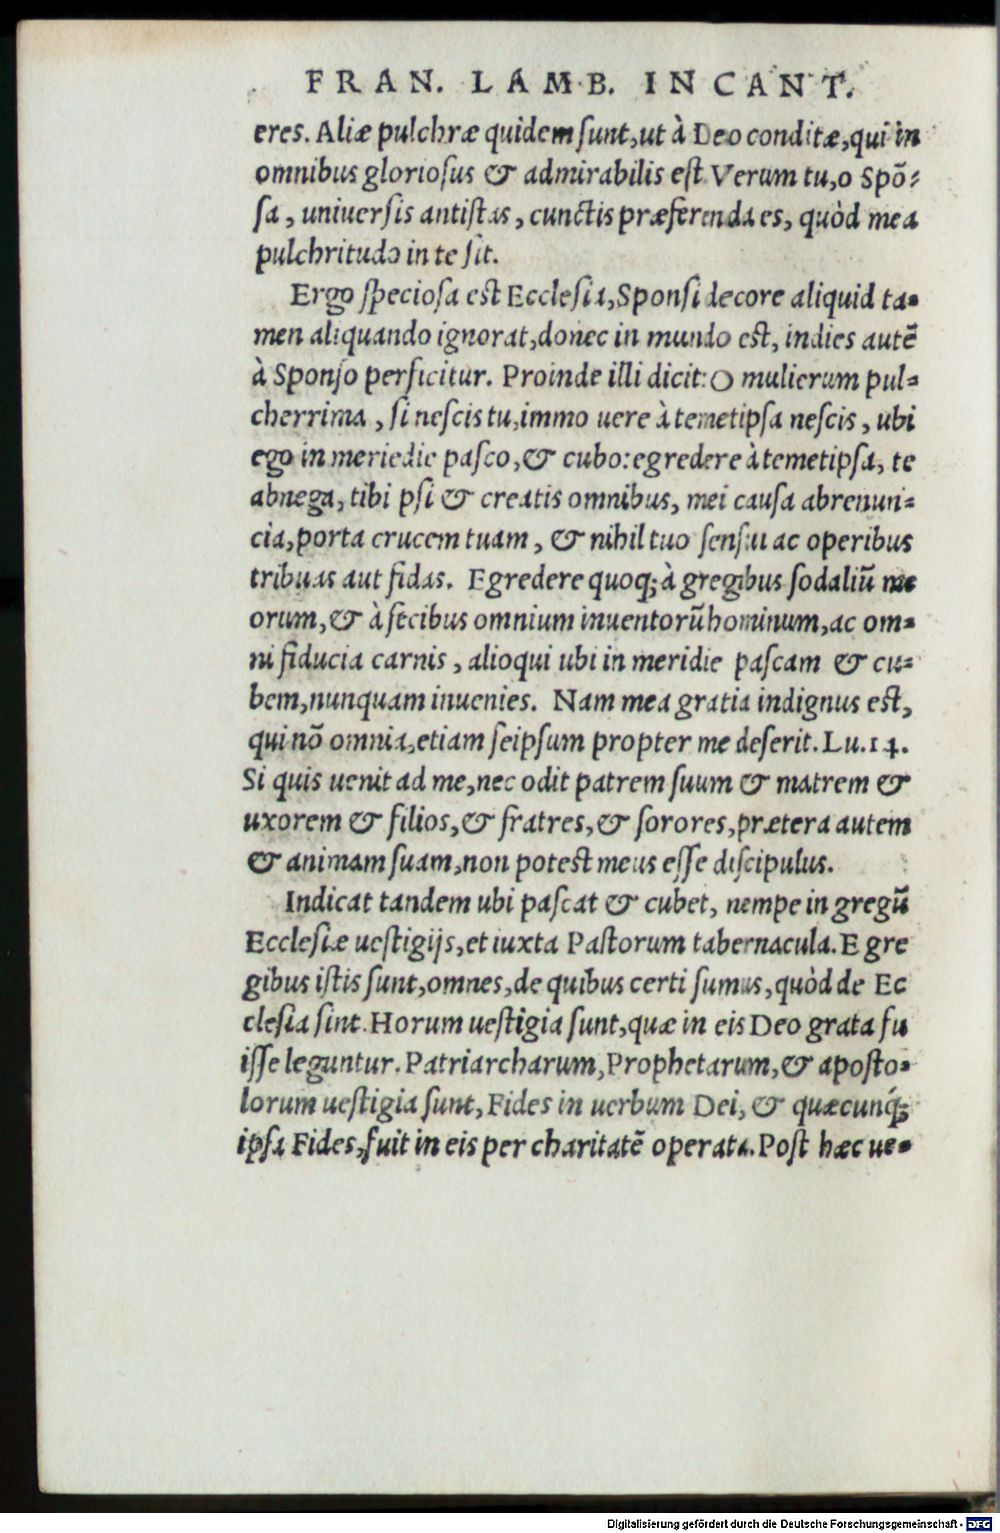 FRAN. LAMB. IN CANT.
eres. Aliæ pulchræ quidem sunt, ut à Deo conditæ, qui in
omnibus gloriosus & admirabilis est. Verum tu, o Spõ-
sa, uniuersis antistas, cunctis præferenda es, quòd mea
pulchritudo in te sit.
Ergo speciosa est Ecclesia, Sponsi decore aliquid ta-
men aliquando ignorat, donec in mundo est, indies autẽ
à Sponso perficitur. Proinde illi dicit: O mulierum pul-
cherrima, si nescis tu, immo uere à temetipsa nescis, ubi
ego in meriedie pasco, & cubo: egredere à temetipsa, te
abnega, tibi psi & creatis omnibus, mei causa abrenun-
cia, porta crucem tuam, & nihil tuo sensui ac operibus
tribuas aut fidas. Egredere quoq; à gregibus sodaliũ me
orum, & à fecibus omnium inuentorũ hominum, ac om-
ni fiducia carnis, alioqui ubi in meridie pascam & cu-
bem, nunquam inuenies. Nam mea gratia indignus est,
qui nõ omnia, etiam seipsum propter me deserit. Lu. 14.
Si quis uenit ad me, nec odit patrem suum & matrem &
uxorem & filios, & fratres, & sorores, prætera autem
& animam suam, non potest meus esse discipulus.
Indicat tandem ubi pascat & cubet, nempe in gregũ
Ecclesiæ uestigijs, et iuxta Pastorum tabernacula. E gre
gibus istis sunt, omnes, de quibus certi sumus, quòd de Ec
clesia sint. Horum uestigia sunt, quæ in eis Deo grata fu
isse leguntur. Patriarcharum, Prophetarum, & aposto-
lorum uestigia sunt, Fides in uerbum Dei, & quæcunq́;
ipsa Fides, fuit in eis per charitatẽ operata. Post hæc ue-
Digitalisierung gefördert durch die Deutsche Forschungsgemeinschaft - DFG